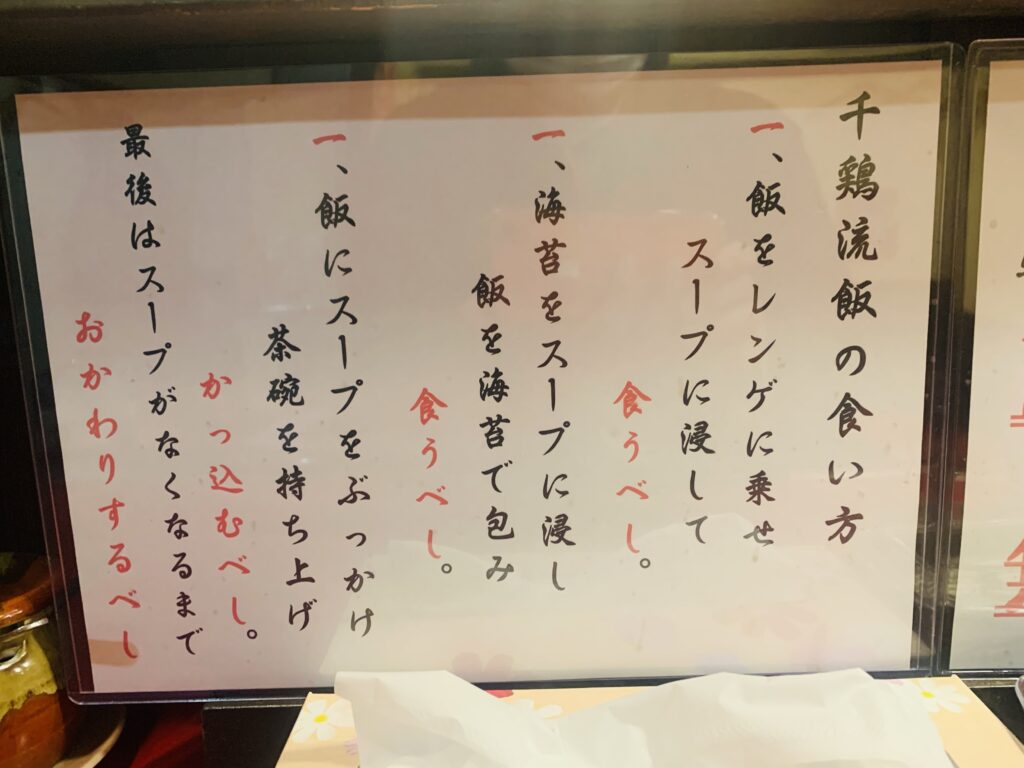 千鶏流飯の食い方
一、飯をレンゲに乗せ
スープに浸して
食うべし。
一、海苔をスープに浸し
飯を海苔で包み
食うべし。
一、飯にスープをぶっかけ
茶碗を持ち上げ
かっ込むべし。
最後はスープがなくなるまで
おかわりするべし